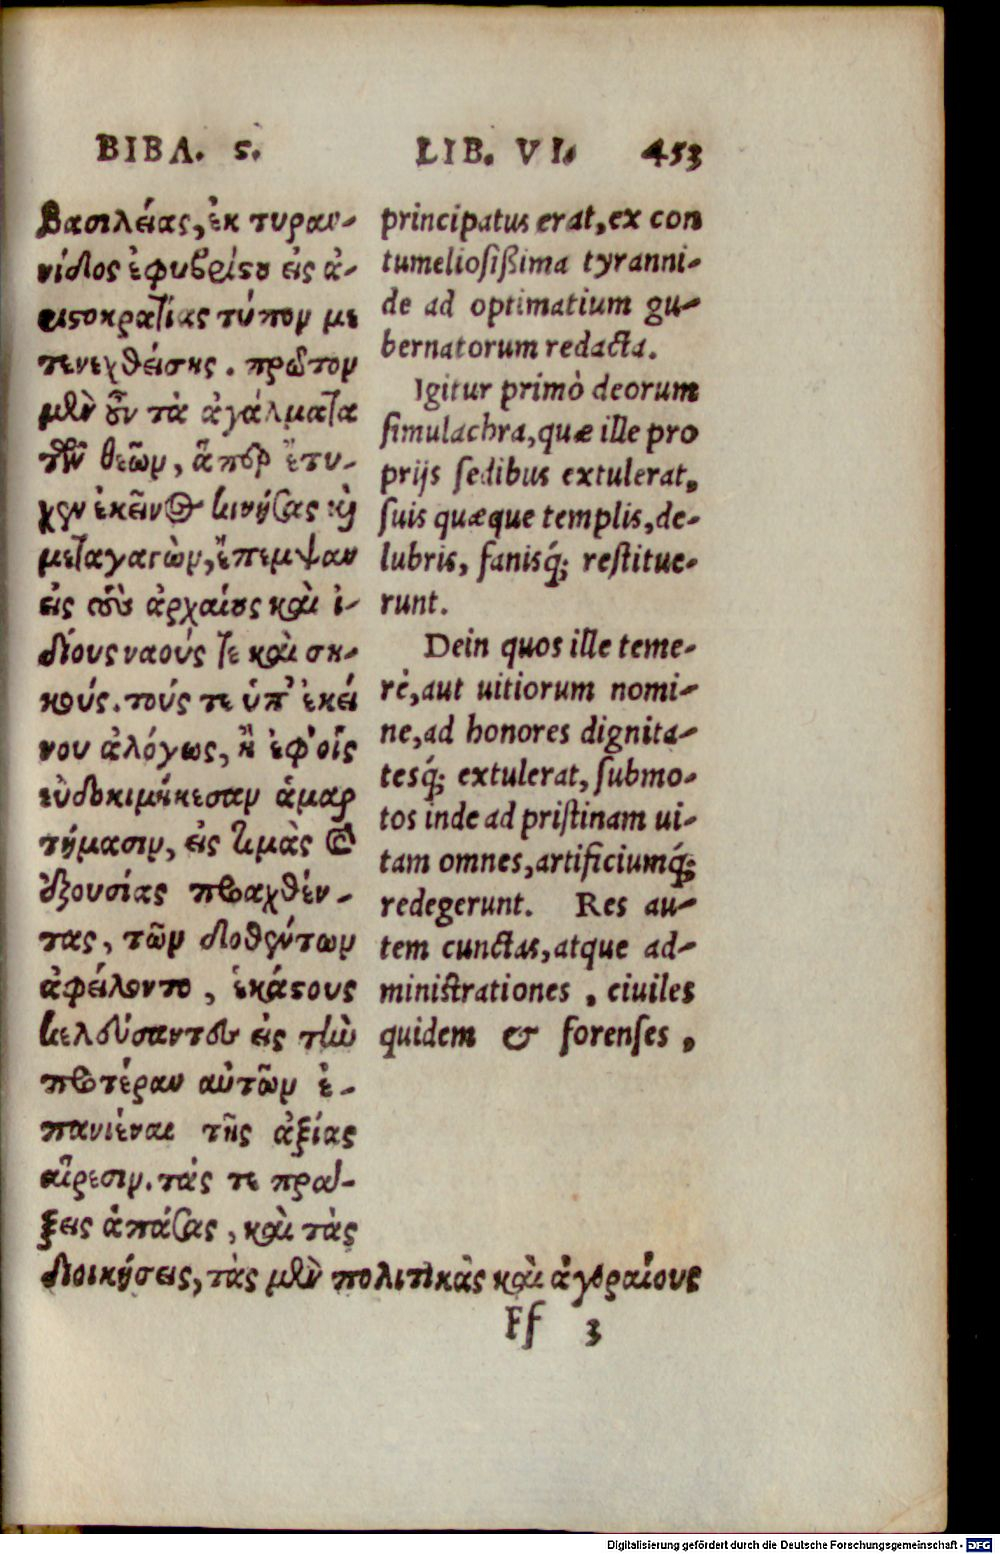 ΒΙΒΛ. ϛ. LIB. VI. 453
βασιλείας, ἐκ τυραν-
νίδος ἐφυβρίστου εἰς ἀ-
ριστοκρατίας τύπον με
τενεχθείσης. πρῶτον
μὲν οὖν τὰ ἀγάλματα
τῶν θεῶν, ἅπερ ἔτυ-
χεν ἐκεῖνος κινήσας καὶ
μεταγαγὼν, ἔπεμψαν
εἰς τοὺς ἀρχαίους καὶ ἰ-
δίους ναούς τε καὶ ση-
κούς. τούς τε ὑπ' ἐκεί
νου ἀλόγως, ἢ ἐφ' οἷς
εὐδοκιμήκεσαν ἁμαρ
τήμασιν, εἰς τιμὰς καὶ
ἐξουσίας προαχθέν-
τας, τῶν δοθέντων
ἀφείλοντο, ἑκάστους
κελεύσαντες εἰς τὴν
προτέραν αὐτῶν ἐ-
πανιέναι τῆς ἀξίας
αἵρεσιν. τάς τε πρά-
ξεις ἁπάσας, καὶ τὰς
διοικήσεις, τὰς μὲν πολιτικὰς καὶ ἀγοραίους
principatus erat, ex con
tumeliosißima tyranni-
de ad optimatium gu-
bernatorum redacta.
Igitur primò deorum
simulachra, quæ ille pro
prijs sedibus extulerat,
suis quæque templis, de-
lubris, fanisq́; restitue-
runt.
Dein quos ille teme-
rè, aut uitiorum nomi-
ne, ad honores dignita-
tesq́; extulerat, submo-
tos inde ad pristinam ui-
tam omnes, artificiumq́;
redegerunt. Res au-
tem cunctas, atque ad-
ministrationes, ciuiles
quidem & forenses,
Ff 3
Digitalisierung gefördert durch die Deutsche Forschungsgemeinschaft - DFG